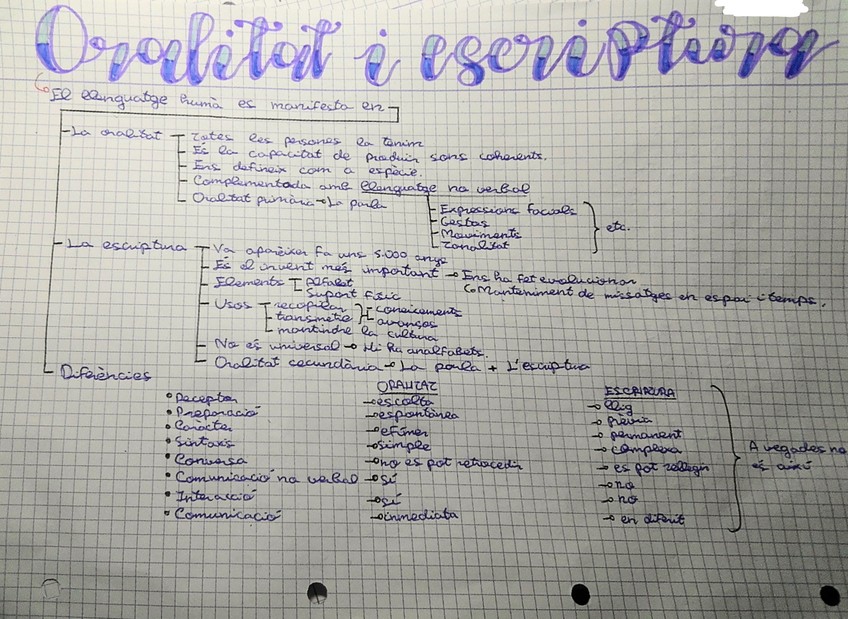 Oralitat i escriptura
El llenguatge humà es manifesta en
- La oralitat
- Totes les persones la tenim
- És la capacitat de produir sons coherents.
- Ens defineix com a espècie.
- Complementada amb llenguatge no verbal
- Expressions facials
- Gestos
- Moviments
- Tonalitat
etc.
- Oralitat primària → La parla
- La escriptura
- Va aparèixer fa uns 5.000 anys
- És el invent més important → Ens ha fet evolucionar
→ Manteniment de missatges en espai i temps.
- Elements
- Alfabet
- Suport físic
- Usos
- recopilar
- transmetre
- coneixements
- avanços
- mantindre la cultura
- No és universal → Hi ha analfabets.
- Oralitat secundària → La parla + L'escriptura
- Difències
ORALITAT ESCRIPTURA
• Receptor → escolta → llig
• Preparació → espontánea → prèvia
• Caràcter → efímer → permanent
• Sintaxis → simple → complexa
• Conversa → no es pot retrocedir → es pot rellegir
• Comunicació no verbal → sí → no
• Interacció → sí → no
• Comunicació → inmediata → en diferit
A vegades no
és així